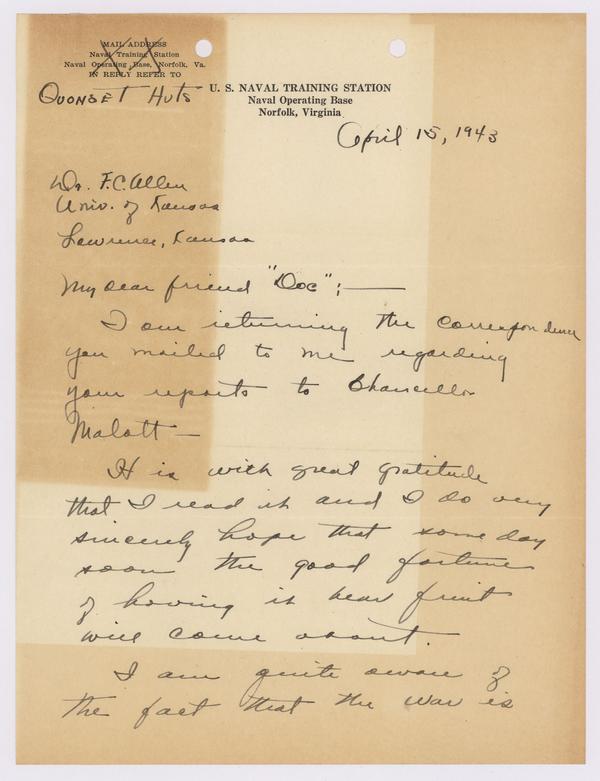 MAIL ADDRESS
Naval Training Station
Naval Operating Base, Norfolk, Va.
IN REPLY REFER TO
Quonset Huts
U. S. NAVAL TRAINING STATION
Naval Operating Base
Norfolk, Virginia
April 15, 1943
Dr. F.C. Allen
Univ. of Kansas
Lawrence, Kansas
My dear friend "Doc";—
I am returning the correspondence
you mailed to me regarding
your reports to Chancellor
Malott —
It is with great gratitude
that I read it and I do very
sincerely hope that some day
soon the good fortune
of having it bear fruit
will come about.
I am quite aware of
the fact that the war is